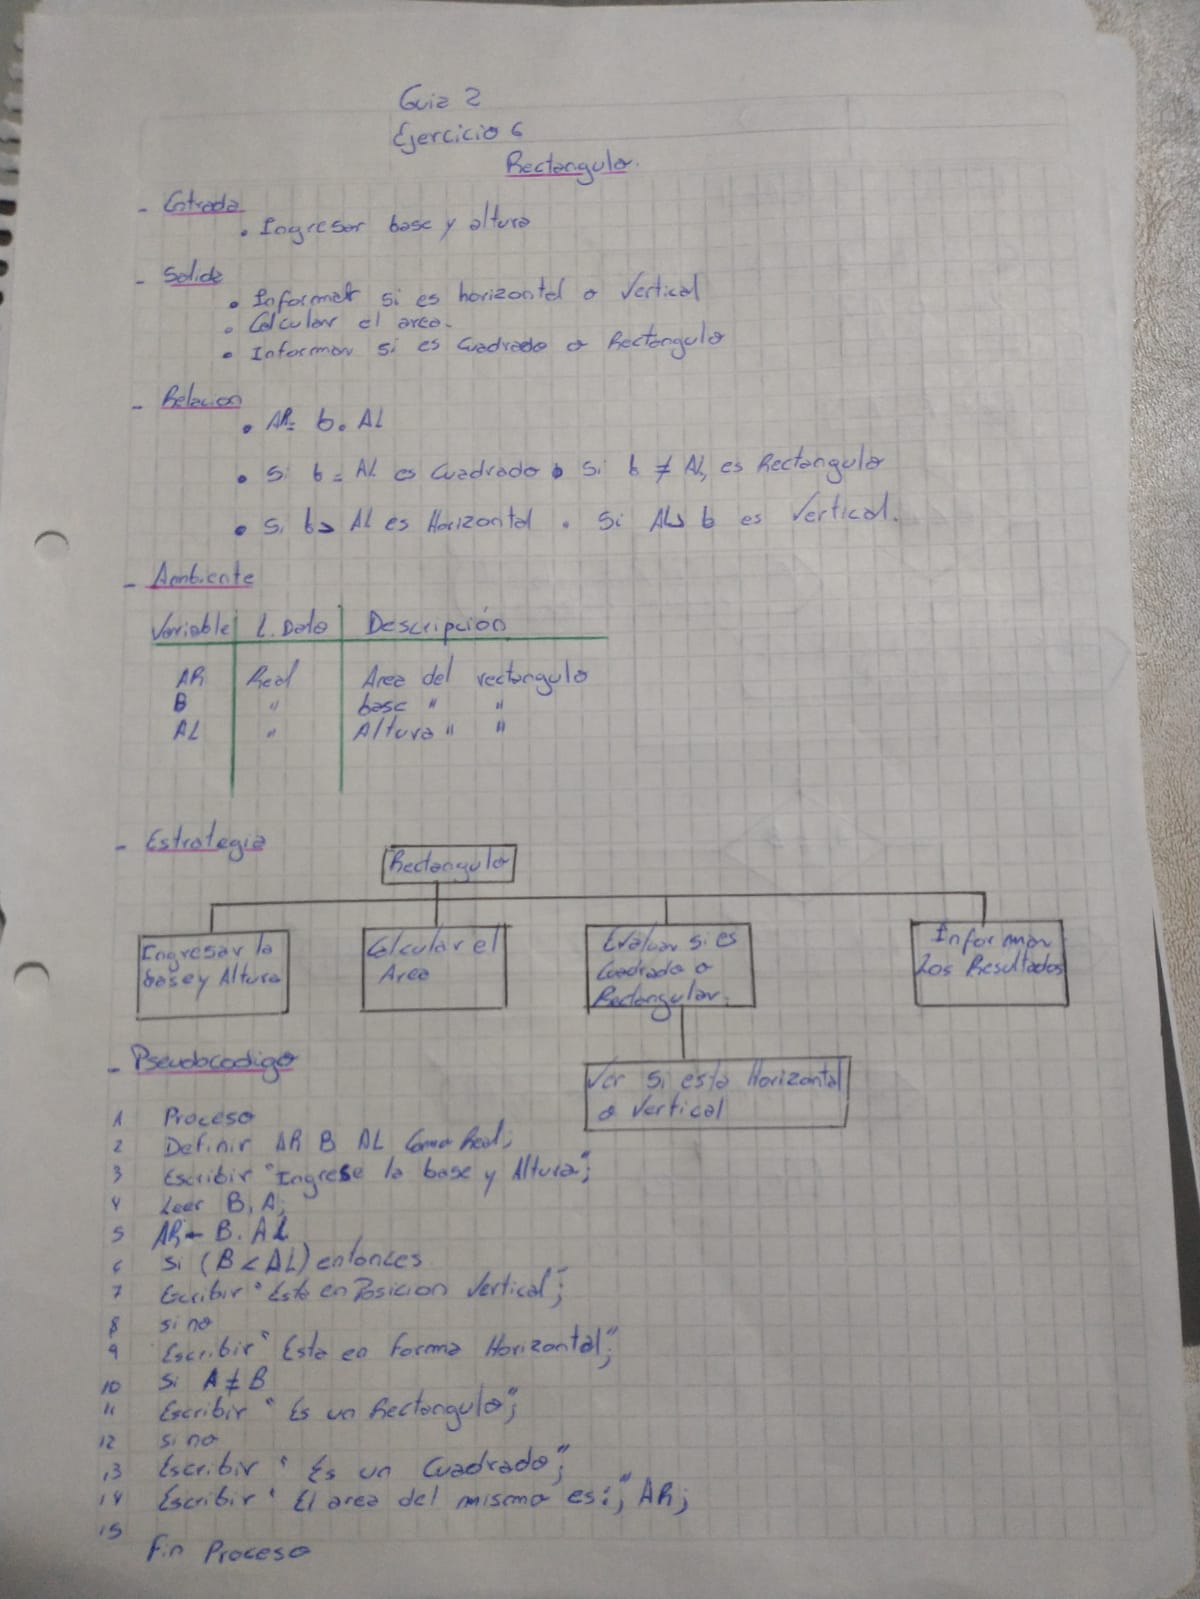 Guia 2
Ejercicio 6
Rectangulo.
- Entrada
• Ingresar base y altura
- Salida
• Informar si es horizontal o Vertical
• Calcular el area.
• Informar si es Cuadrado o Rectangulo
- Relacion
• AR= b . AL
• Si b = AL es Cuadrado • Si b ≠ AL, es Rectangulo
• Si b > AL es Horizontal . Si AL > b es Vertical.
- Ambiente
Variable t. Dato Descripción
AR Real Area del rectangulo
B " base " "
AL " Altura " "
- Estrategia
Rectangulo
Ingresar la base y Altura
Calcular el Area
Evaluar si es Cuadrado o Rectangular.
Informar Los Resultados
Ver si esta Horizontal o Vertical
- Pseudocodigo
1 Proceso
2 Definir AR B AL Como Real;
3 Escribir "Ingrese la base y Altura";
4 Leer B, A;
5 AR ← B . AL
6 Si (B < AL) entonces
7 Escribir "Esta en Posicion Vertical";
8 si no
9 Escribir "Esta en forma Horizontal";
10 Si A ≠ B
11 Escribir "Es un Rectangulo";
12 si no
13 Escribir "Es un Cuadrado";
14 Escribir "El area del mismo es:", AR;
15
Fin Proceso